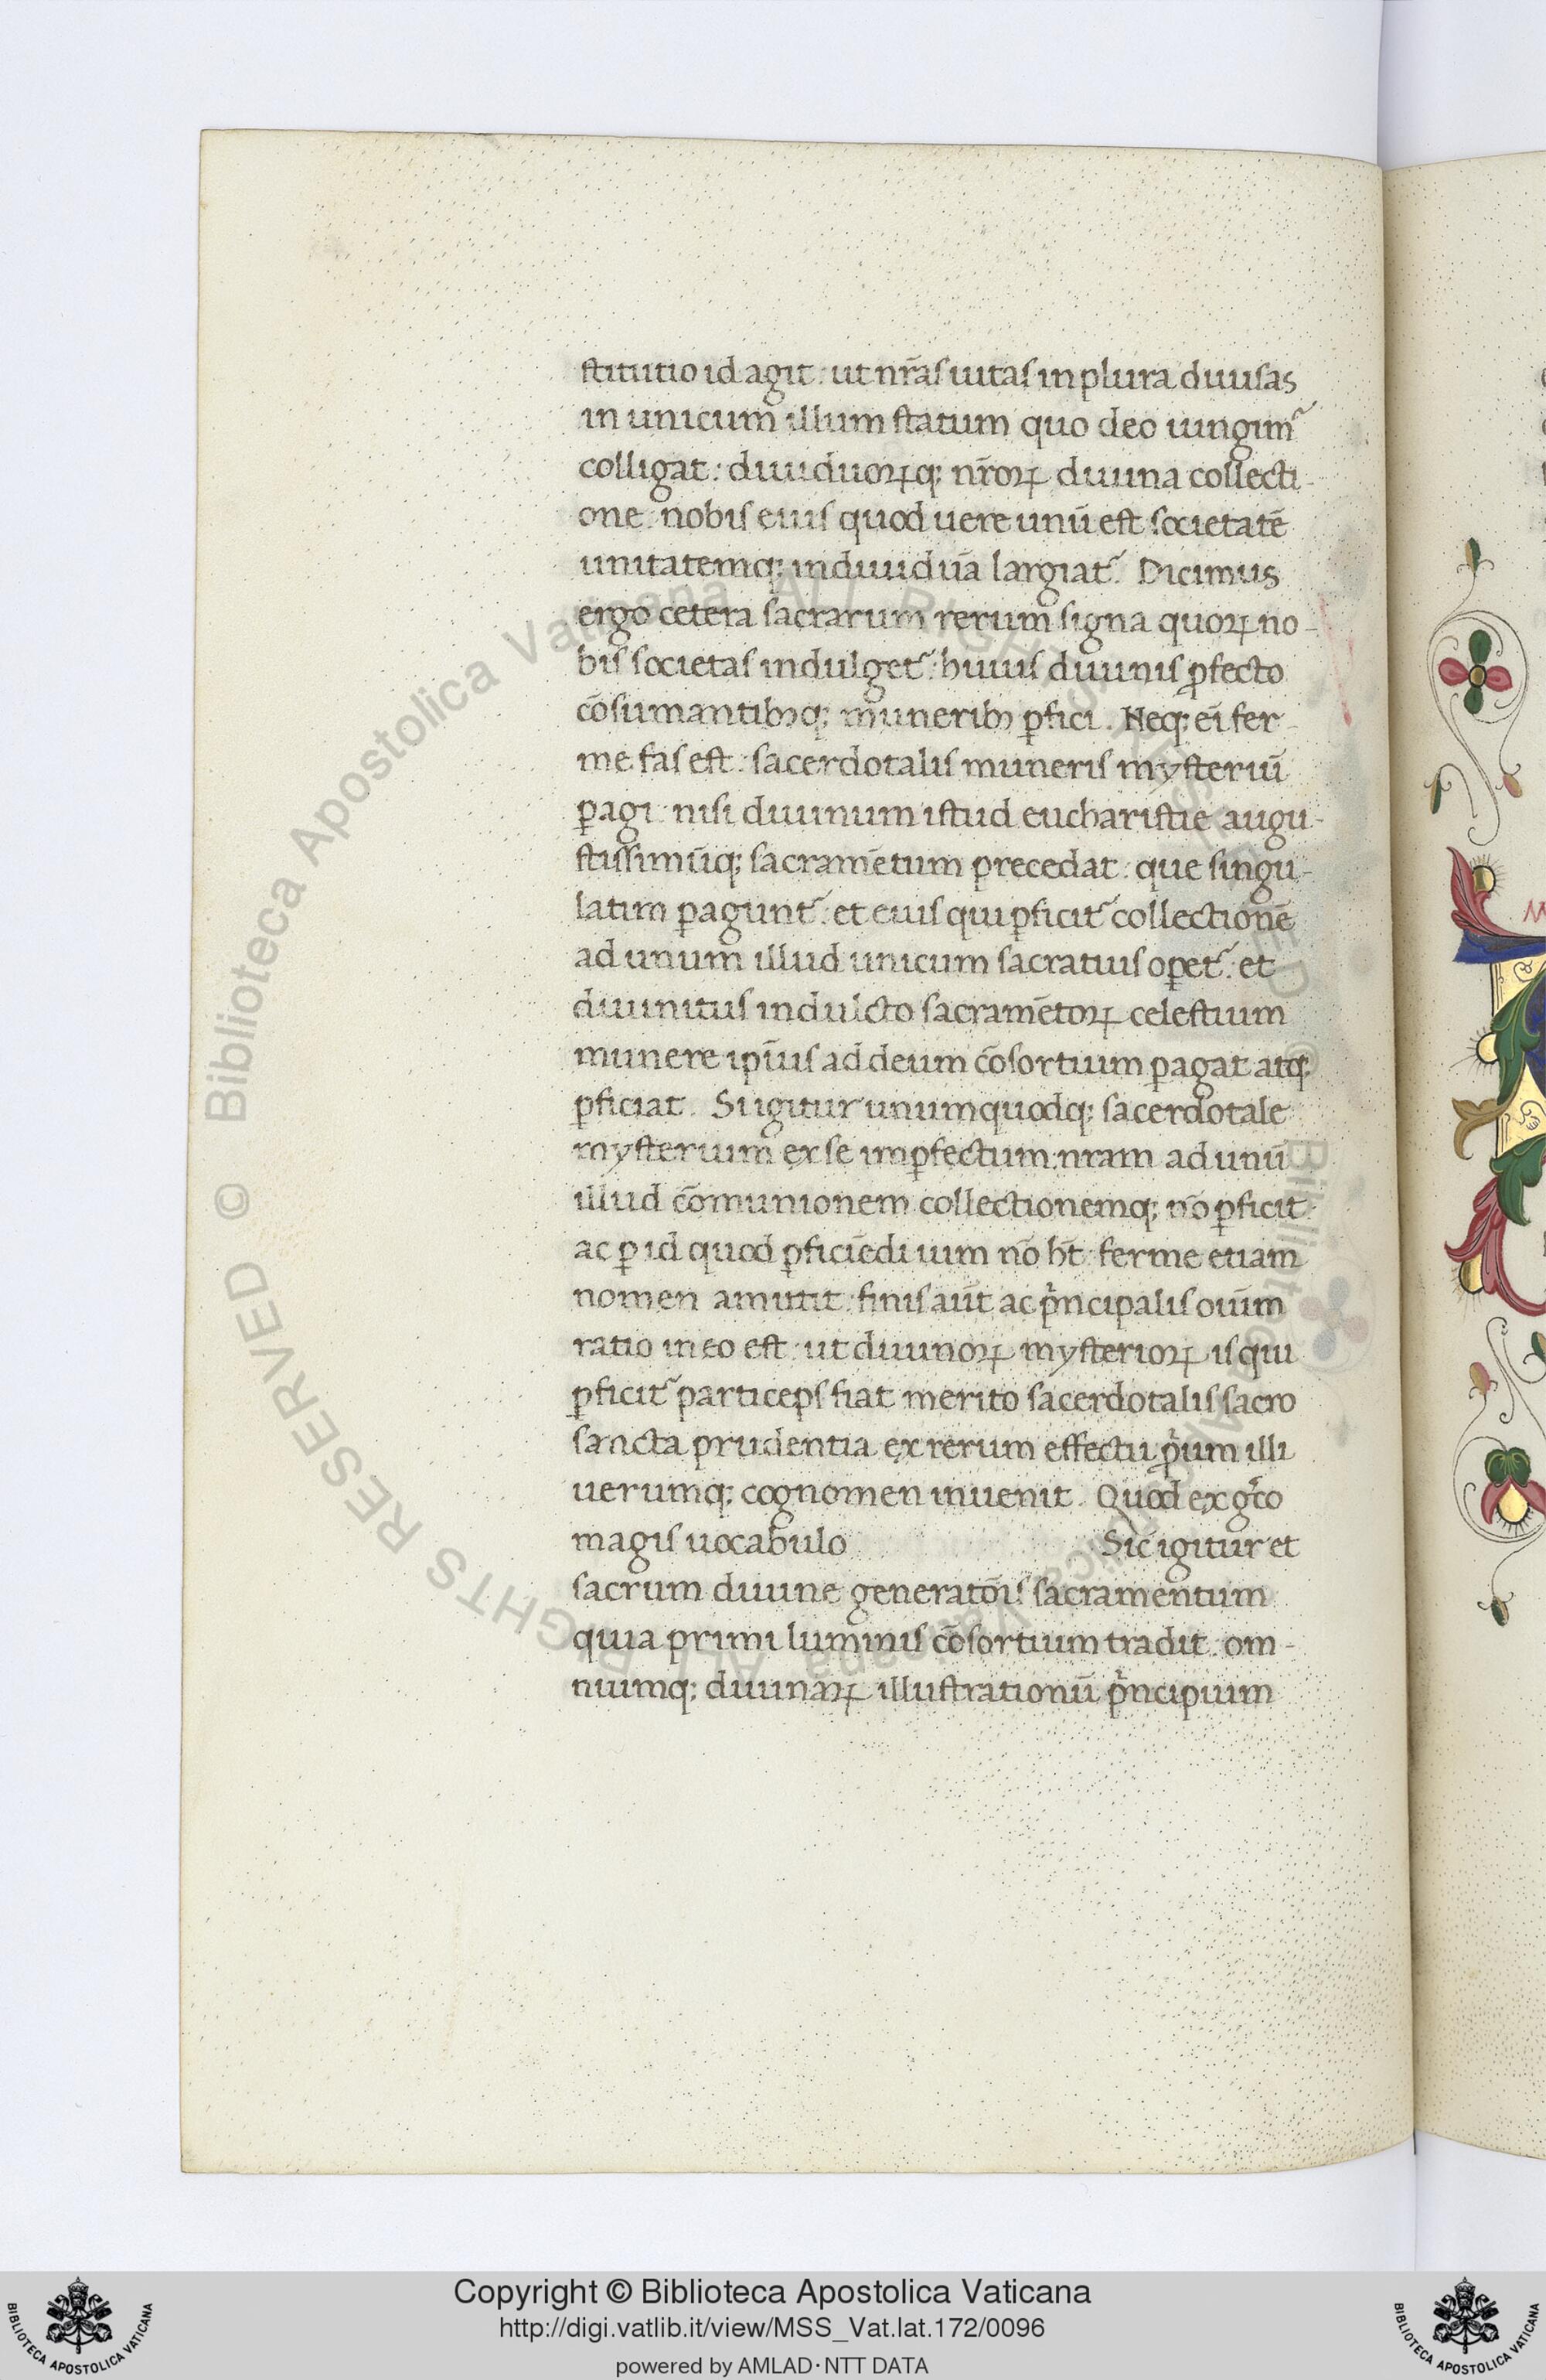 stitutio id agit : ut nr̃as uitas in plura diuisas
in unicum illum statum quo deo iungim᷑
colligat : diuiduoꝝq; nr̃oꝝ diuina collecti-
one : nobis eius quod uere unũ est societatẽ
unitatemq; indiuiduã largiat᷑. Dicimus
ergo cetera sacrarum rerum signa quoꝝ no-
bis societas indulget᷑ : huius diuinis ꝓfecto
cõsumantibꝫq; muneribꝫ ꝑfici. Neq; eĩ fer-
me fas est : sacerdotalis muneris mysteriũ
ꝑagi : nisi diuinum istud eucharistie augu-
stissimũq; sacramẽtum precedat : que singu-
latim ꝑagunt᷑ : et eius qui ꝑficit᷑ collectionẽ
ad unum illud unicum sacratius oꝑet᷑ : et
diuinitus indulcto sacramẽtoꝝ celestium
munere ipĩus ad deum cõsortium ꝑagat atq;
ꝑficiat. Si igitur unumquodq; sacerdotale
mysterium ex se imꝑfectum nram ad unũ
illud cõmunionem collectionemq; nõ ꝑficit :
ac ꝑ id quod ꝑficiẽdi uim nõ ht̃ : ferme etiam
nomen amittit : finis aũt ac pͥncipalis oĩum
ratio in eo est : ut diuinoꝝ mysterioꝝ is qui
ꝑficit᷑ particeps fiat merito sacerdotalis sacro
sancta prudentia ex rerum effectu pͥum illi
uerumq; cognomen inuenit. Quod ex gͬco
magis uocabulo Sic igitur et
sacrum diuine generatõis sacramentum
quia primi luminis cõsortium tradit : om-
niumq; diuinaꝝ illustrationũ pͥncipium
Copyright © Biblioteca Apostolica Vaticana
http://digi.vatlib.it/view/MSS_Vat.lat.172/0096
powered by AMLAD·NTT DATA